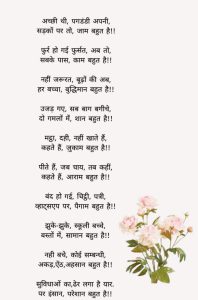 अच्छी थी, पगडंडी अपनी,
सड़कों पर तो, जाम बहुत है!!
फुर्र हो गई फुर्सत, अब तो,
सबके पास, काम बहुत है!!
नहीं जरूरत, बूढ़ों की अब,
हर बच्चा, बुद्धिमान बहुत है!!
उजड़ गए, सब बाग बगीचे,
दो गमलों में, शान बहुत है!!
मट्ठा, दही, नहीं खाते हैं,
कहते हैं, जुकाम बहुत है!!
पीते हैं, जब चाय, तब कहीं,
कहते हैं, आराम बहुत है!!
बंद हो गई, चिट्ठी, पत्री,
व्हाट्सएप पर, पैगाम बहुत है!!
झुके-झुके, स्कूली बच्चे,
बस्तों में, सामान बहुत है!!
नही बचे, कोई सम्बन्धी,
अकड़,ऐंठ,अहसान बहुत है!!
सुविधाओं का,ढेर लगा है यार.
पर इंसान, परेशान बहुत है!!